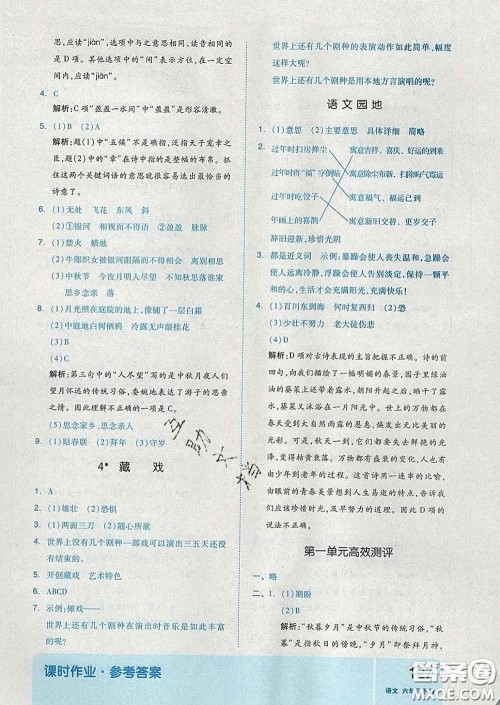 思，应读“jiàn”，选项中与之意思相同、读音相同的是
D。其他选项中的“间”表示方位，在一定的空间
内，应读“jiān”。
4. C
解析：C项“盈盈一水间”中“盈盈”指清澈。
5. (1)B (2)A
解析：题(1)中“五侯”不是确指，泛指天子宠幸之
臣，题(2)中的“章”在诗中指的是整幅的布帛。抓
住这两个关键词语的意思就很容易选出最恰当的
诗意了。
6. (1)无处 飞花 东风 斜
(2)①银河 相视而不得语 ②盈盈 脉脉
7. (1)禁火 蜡烛
(2)牛郎织女被银河阻隔而不得相会
(3)中秋节 今夜月明人尽望 不知秋思落谁家
思乡念亲 落
8. (1)月光照在庭院的地上，像铺了一层白霜
(2)中庭地白树栖鸦 冷露无声湿桂花
(3)B
(4)C
解析：第三句中的“人尽望”写的是中秋月夜人们
望月怀远的传统习俗，委婉地表达了游子的思亲
之情。因此理解不正确的一项是C。
(5)思念家乡、思念亲人
9. (1)贴春联 (2)拜年 (3)守岁
4* 藏 戏
1. A
2. (1)雄壮 (2)恐惧
3. (1)两面三刀 (2)随心所欲
4. 世界上还有几个剧种一部戏可以演出三五天还没
有结束的。
5. 开创藏戏 艺术特色
6. ABCD
7. 示例：傩戏——
世界上还有几个剧种在演出时音乐是如此丰富
多彩的呢？
世界上还有几个剧种的表演动作如此简单，幅度
这样大呢？
世界上还有几个剧种是用本地方言演唱的呢？
语文园地
1. (1)意思 (2)主要意思 具体详细 简略
2. 过年时扫房掸尘 寓意吉祥、喜庆、好运的到来
过年时将“福”字倒贴 寓意除尘布新、扫除晦气霉运
过年时吃饺子 寓意福气、福运已到
年画上的喜鹊 寓意新旧交替、更岁交子
辞旧迎新，珍惜光阴
3. 都是近义词 示例：暴躁会使人丧失自信，急躁会
使人远离冷静，浮躁会使人告别淡定。保持一颗平
和的心，生活才会充满阳光，充满快乐！
4. (1)百川东到海 何时复西归 (2)恐
(3)少壮不努力 老大徒伤悲
(4)D
解析：D项对古诗表现的主旨把握不正确。诗的前
一句，向我们描绘了一幅明媚的春景，园子里绿油
油的葵菜上还带着露水，朝阳升起之后，晒干了露
水，葵菜又沐浴在阳光中。世上的万物都在春天
受到大自然雨露的恩惠，焕发出无比的光彩。可
是，秋天一到，它们都要枯黄凋落。万物经历
春生、夏长、秋收、冬藏，走过一年，正如人也有
由少年到老年的过程。诗人由我们这一连串的比
喻，由眼前的青春美景想到人生易逝的光景，告诫我
们应该珍惜时光，及早努力的道理。因此D项的
说法不正确。
第一单元高效测评
一、略
二、1. (1)期盼
(2)B
解析：“秋暮夕月”是中秋节的传统习俗，“秋
暮”是指秋日的傍晚，“夕月”即祭拜月神，
课时作业·参考答案
语文 六年
互助文档
答案圈
MXQE.COM